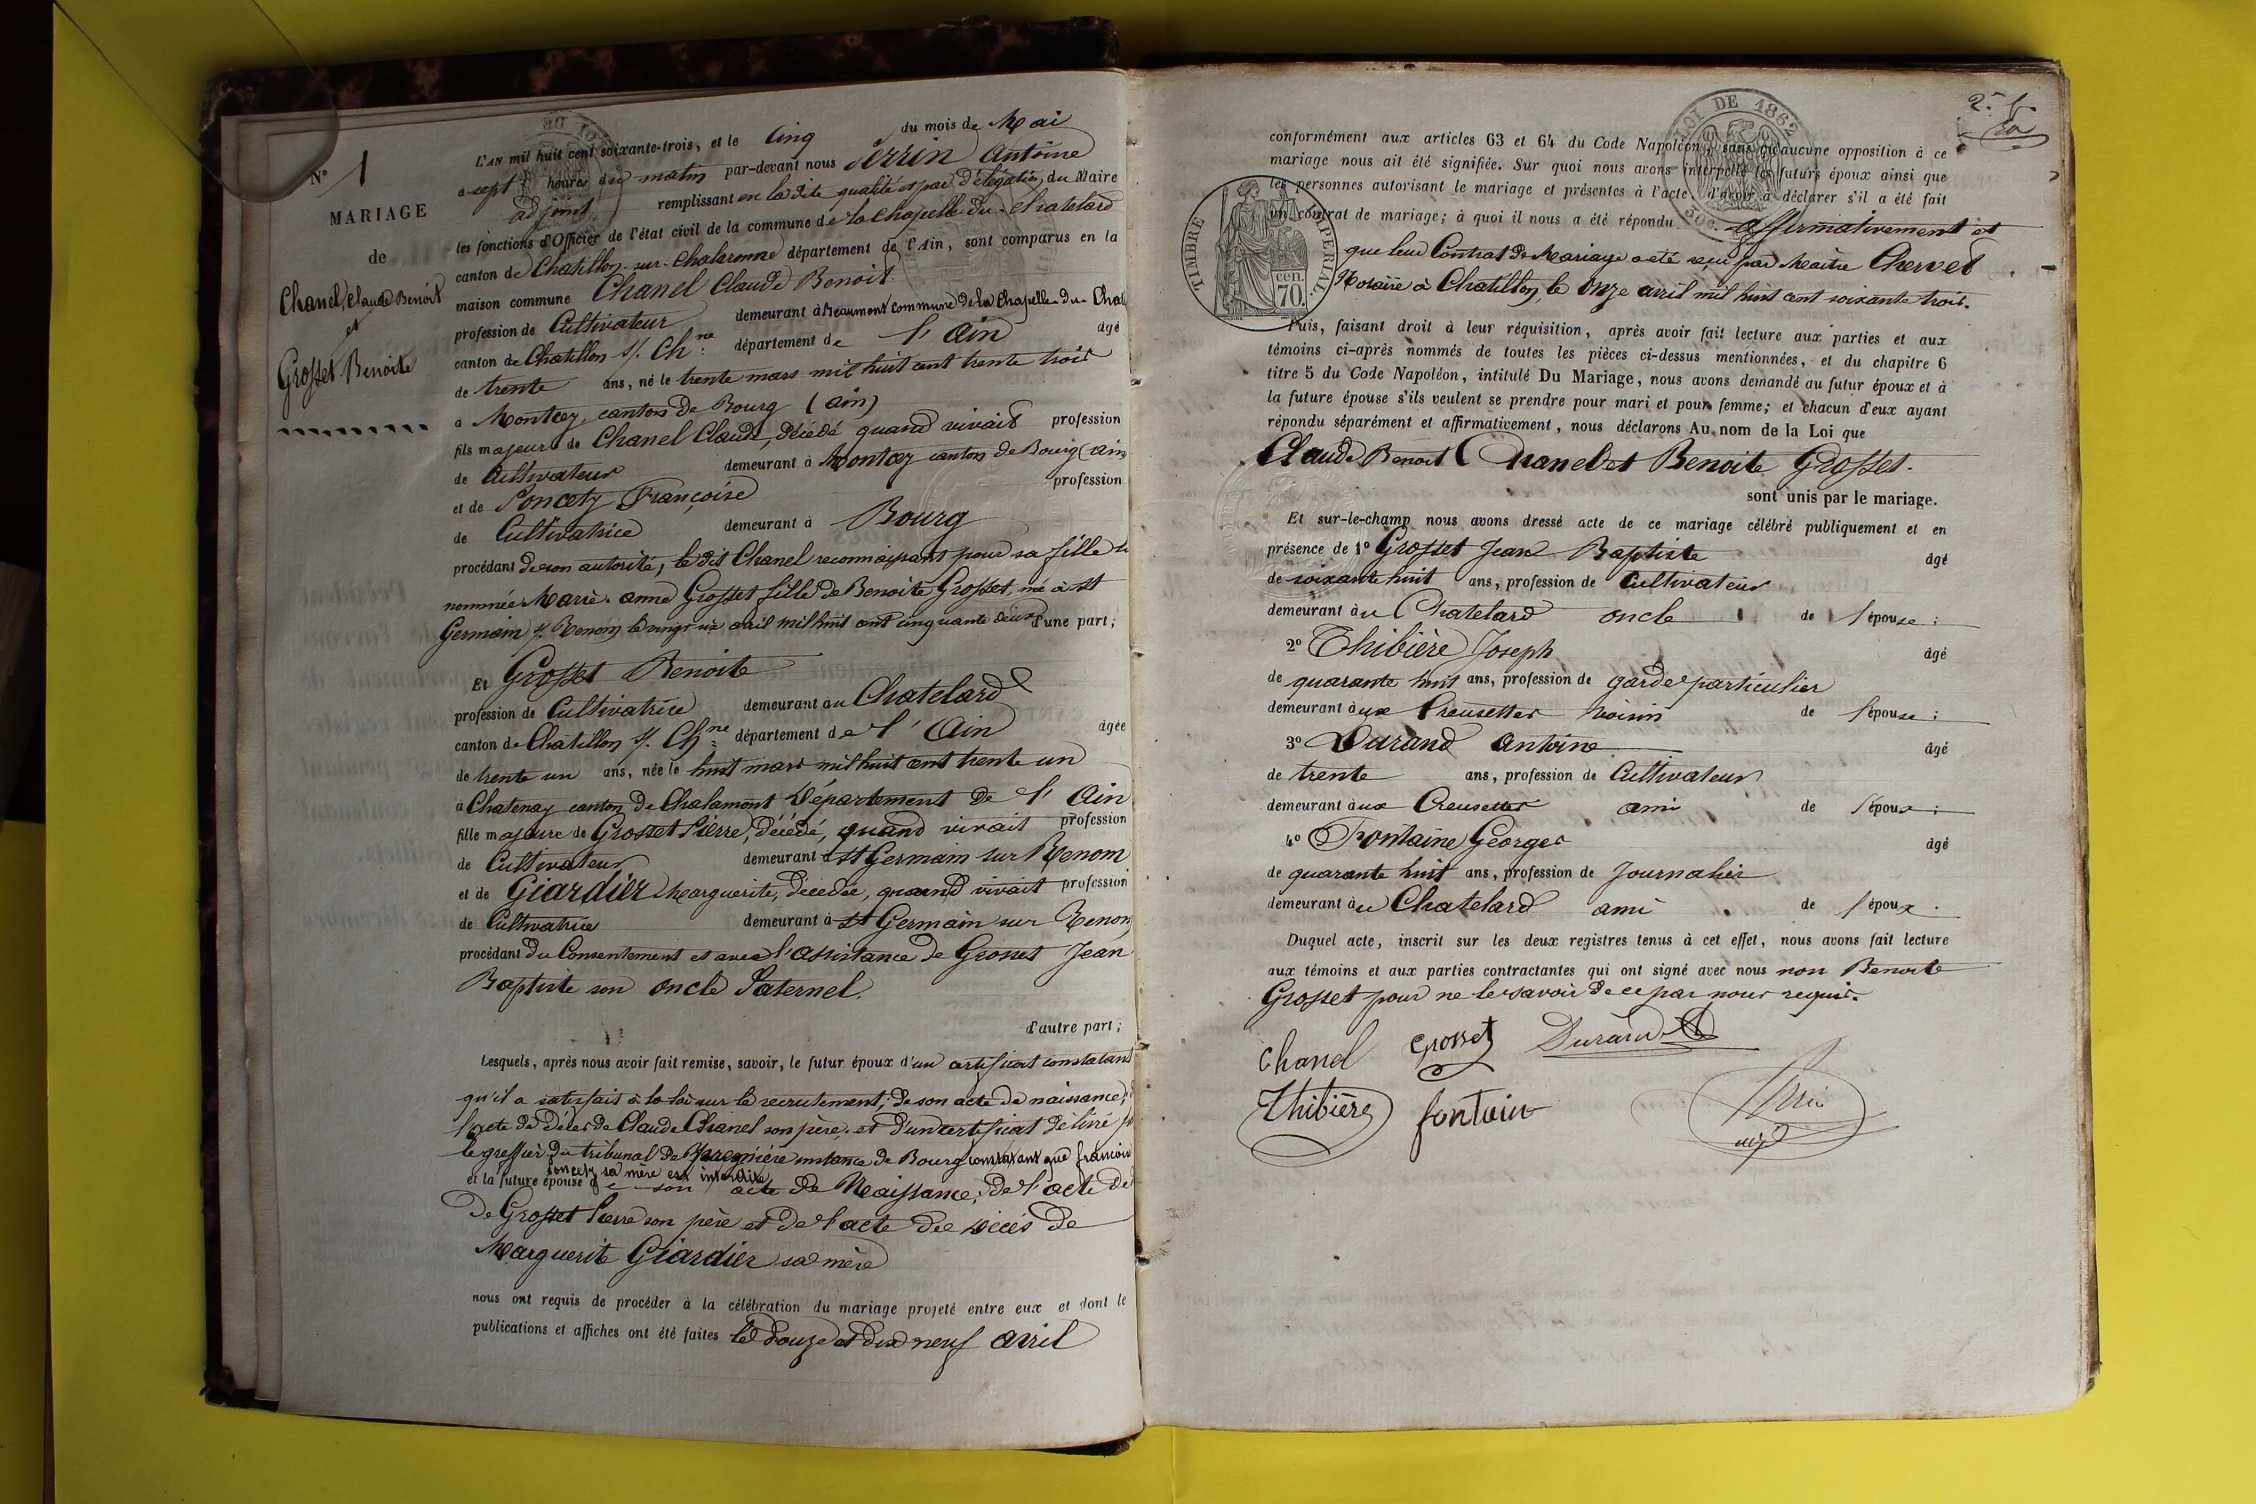 N° 1
MARIAGE
de
Chanel, Claude Benoit
et
Grosset Benoite
L'AN mil huit cent soixante-trois, et le cinq du mois de Mai
a sept heures du matin par-devant nous Perrin Antoine
adjoint remplissant en la dite qualité et par délégation du Maire
les fonctions d'Officier de l'état civil de la commune de la Chapelle du Chatelard
canton de Chatillon-sur-Chalaronne département de l'Ain, sont comparus en la
maison commune Chanel Claude Benoit
profession de Cultivateur demeurant à Beaumont Commune de la Chapelle-du-Chat
canton de Chatillon s/. Chne département de l'Ain âgé
de trente ans, né le trente mars mil huit cent trente trois
à Montcey, canton de Bourg (ain)
fils majeur de Chanel Claude, décédé quand vivait profession
de Cultivateur demeurant à Montcey canton de Bourg (ain
et de Poncety Françoise profession
de Cultivatrice demeurant à Bourg
procédant de son autorité, le dit Chanel reconnaissant pour sa fille la
nommée Marie-anne Grosset fille de Benoite Grosset, née à st
Germain s/. Renom le vingt six avril mil huit cent cinquante deux d'une part;
Et Grosset Benoite
profession de Cultivatrice demeurant au Chatelard
canton de Chatillon s/. Chne département de l'Ain âgée
de trente un ans, née le huit mars mil huit cent trente un
à Chatenay canton de Chalamont Département de l'Ain
fille majeure de Grosset Pierre, décédé, quand vivait profession
de Cultivateur demeurant à st Germain sur Renom
et de Giardier Marguerite, décédée, quand vivait profession
de Cultivatrice demeurant à st Germain sur Renom
procédant du Consentement et avec l'assistance de Grosset Jean
Baptiste son oncle Paternel.
d'autre part;
Lesquels, après nous avoir fait remise, savoir, le futur époux d'un certificat constatant
qu'il a satisfait à la loi sur le recrutement; de son acte de naissance;
l'acte de décès de Claude Chanel son père, et d'un certificat délivré p
le greffier du tribunal de première instance de Bourg constatant que francoise
Poncety sa mère est interdite
et la future épouse de son acte de Naissance; de l'acte de
de Grosset Pierre son père et de l'acte de décès de
Marguerite Giardier sa mère
nous ont requis de procéder à la célébration du mariage projeté entre eux et dont le
publications et affiches ont été faites le Douze et dix neuf avril
LOI DE 1862
TIMBRE IMPERIAL
70 cen.
conformément aux articles 63 et 64 du Code Napoléon, sans qu'aucune opposition à ce
mariage nous ait été signifiée. Sur quoi nous avons interpellé les futurs époux ainsi que
les personnes autorisant le mariage et présentes à l'acte, d'avoir à déclarer s'il a été fait
un contrat de mariage; à quoi il nous a été répondu affirmativement et
que leur Contrat de Mariage a été reçu par Maître Chervet
Notaire à Chatillon le onze avril mil huit cent soixante trois.
Puis, faisant droit à leur réquisition, après avoir fait lecture aux parties et aux
témoins ci-après nommés de toutes les pièces ci-dessus mentionnées, et du chapitre 6
titre 5 du Code Napoléon, intitulé Du Mariage, nous avons demandé au futur époux et à
la future épouse s'ils veulent se prendre pour mari et pour femme; et chacun d'eux ayant
répondu séparément et affirmativement, nous déclarons Au nom de la Loi que
Claude Benoit Chanel et Benoite Grosset.
sont unis par le mariage.
Et sur-le-champ nous avons dressé acte de ce mariage célébré publiquement et en
présence de 1° Grosset Jean Baptiste âgé
de soixante huit ans, profession de Cultivateur
demeurant au Chatelard oncle de l'épouse;
2° Thibière Joseph âgé
de quarante huit ans, profession de garde particulier
demeurant aux Creusettes voisin de l'épouse;
3° Durand Antoine âgé
de trente ans, profession de Cultivateur
demeurant aux Creusettes ami de l'époux;
4° Fontaine Georges âgé
de quarante huit ans, profession de Journalier
demeurant au Chatelard ami de l'époux.
Duquel acte, inscrit sur les deux registres tenus à cet effet, nous avons fait lecture
aux témoins et aux parties contractantes qui ont signé avec nous non Benoite
Grosset pour ne le savoir de ce par nous requis.
Chanel Grosset Durand
Thibière fontain Perrin
adj